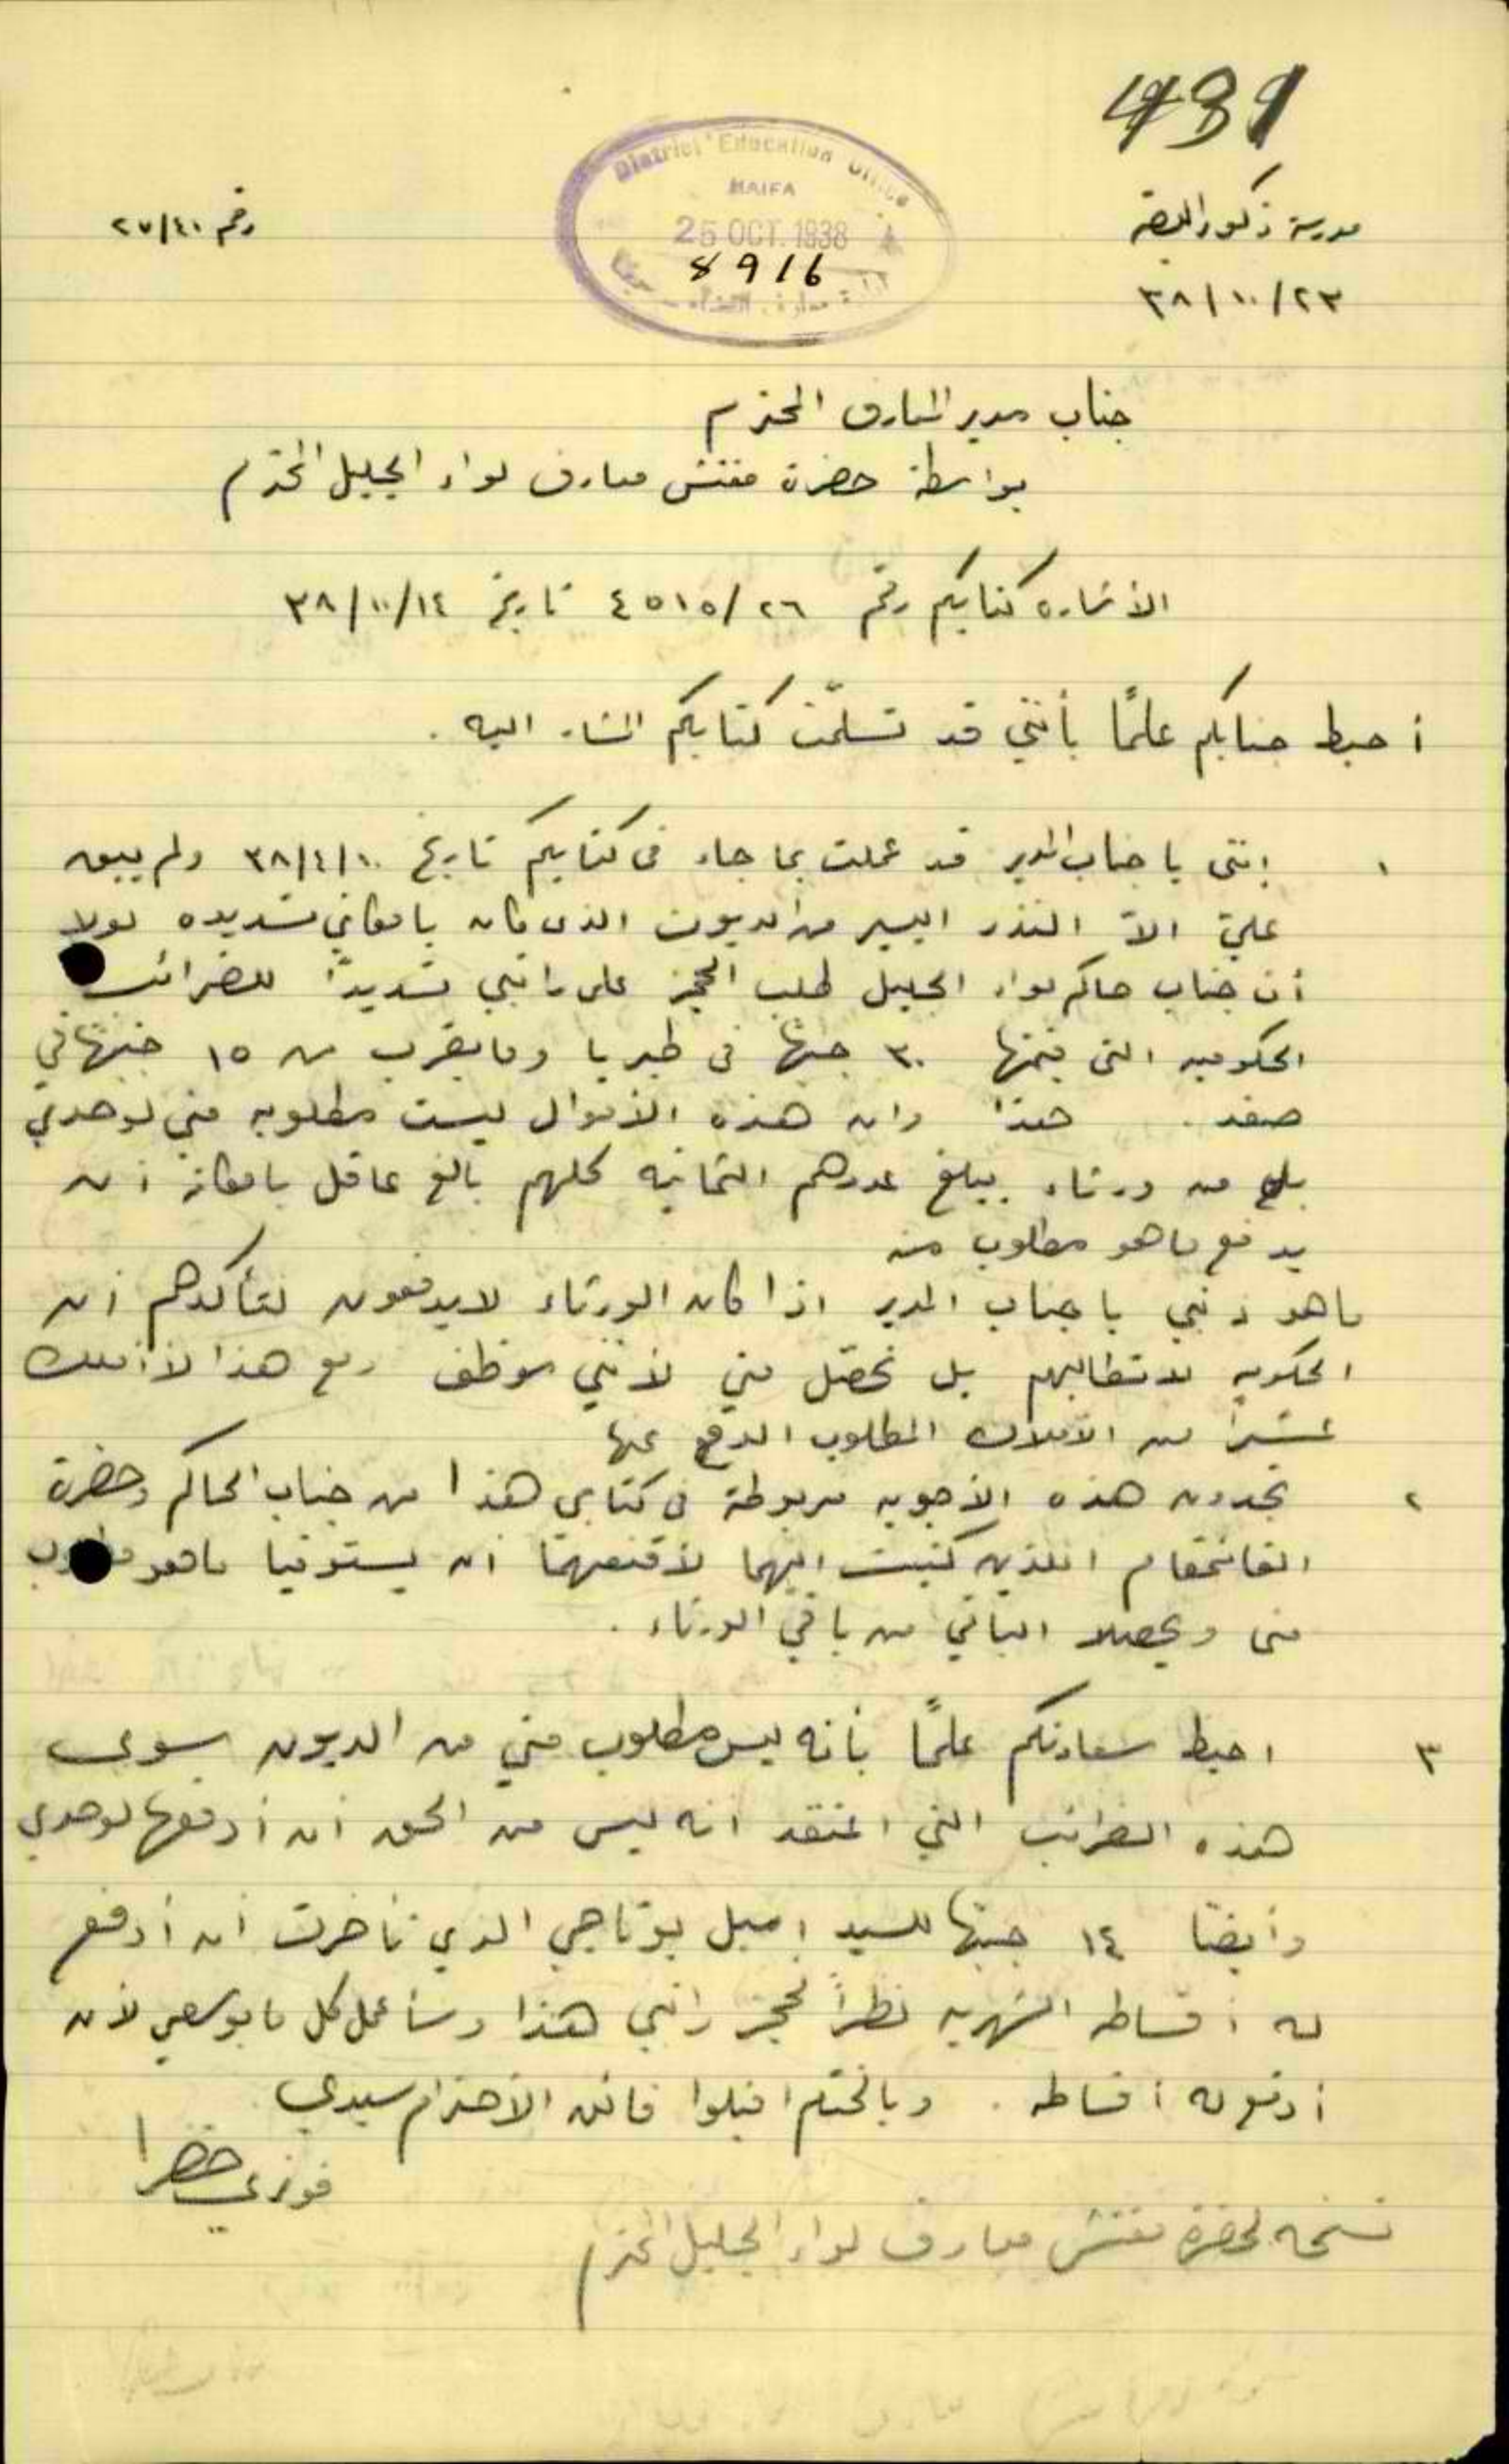 491
مدرسة ذكور البصة
رقم ٢٧/٤٠
٣٨/١٠/٢٣
District Education Office
HAIFA
25 OCT. 1938
8916
جناب مدير المعارف المحترم
بواسطة حضرة مفتش معارف لواء الجليل المحترم
الأشاره كتابكم رقم ٤٥١٥/٢٦ تاريخ ٣٨/١٠/١٤
أحيط جنابكم علمًا بأنني قد تسلّمت كتابكم المشار اليه .
١ إنني يا جناب المدير قد عملت بما جاء في كتابكم تاريخ ٣٨/٤/١٠ ولم يبق
عليّ الاّ النذر اليسير من الديون الذي كان بامكاني تسديده لولا
أن جناب حاكم لواء الجليل طلب الحجز على راتبي تسديدًا للضرائب
الحكوميه التي قيمتها ٣٠ جنيهًا في طبريا وما يقرب من ١٥ جنيهًا في
صفد . هذا وان هذه الأموال ليست مطلوبه مني لوحدي
بل من ورثاء يبلغ عددهم الثمانيه كلهم بالغ عاقل بامكانه أن
يدفع ما هو مطلوب منه
ما هو ذنبي يا جناب المدير اذا كان الورثاء لا يدفعون لتأكدهم أن
الحكومه لا تطالبهم بل تحصّل مني لأنني موظف ومع هذا لا أملك
عشرا من الأملاك المطلوب الدفع عنها
٢ تجدون هذه الأجوبه مربوطة في كتابي هذا من جناب الحاكم وحضرة
القائمقام اللذين كتبت اليهما لأقنعهما ان يستوفيا ما هو مطلوب
مني ويحصلا الباقي من باقي الورثاء .
٣ احيط سعادتكم علمًا بأنه ليس مطلوب مني من الديون سوى
هذه الضرائب التي اعتقد انه ليس من الحق ان أدفعها لوحدي
وأيضًا ١٤ جنيهًا للسيد إميل بوتاجي الذي تأخرت ان أدفع
له أقساطه الشهريه نظراً لحجز راتبي هذا وسأعمل كل ما بوسعي لأن
أدفع له أقساطه . وبالختام اقبلوا فائق الأحترام سيدي
فوزي خضرا
نسخه لحضرة مفتش معارف لواء الجليل المحترم